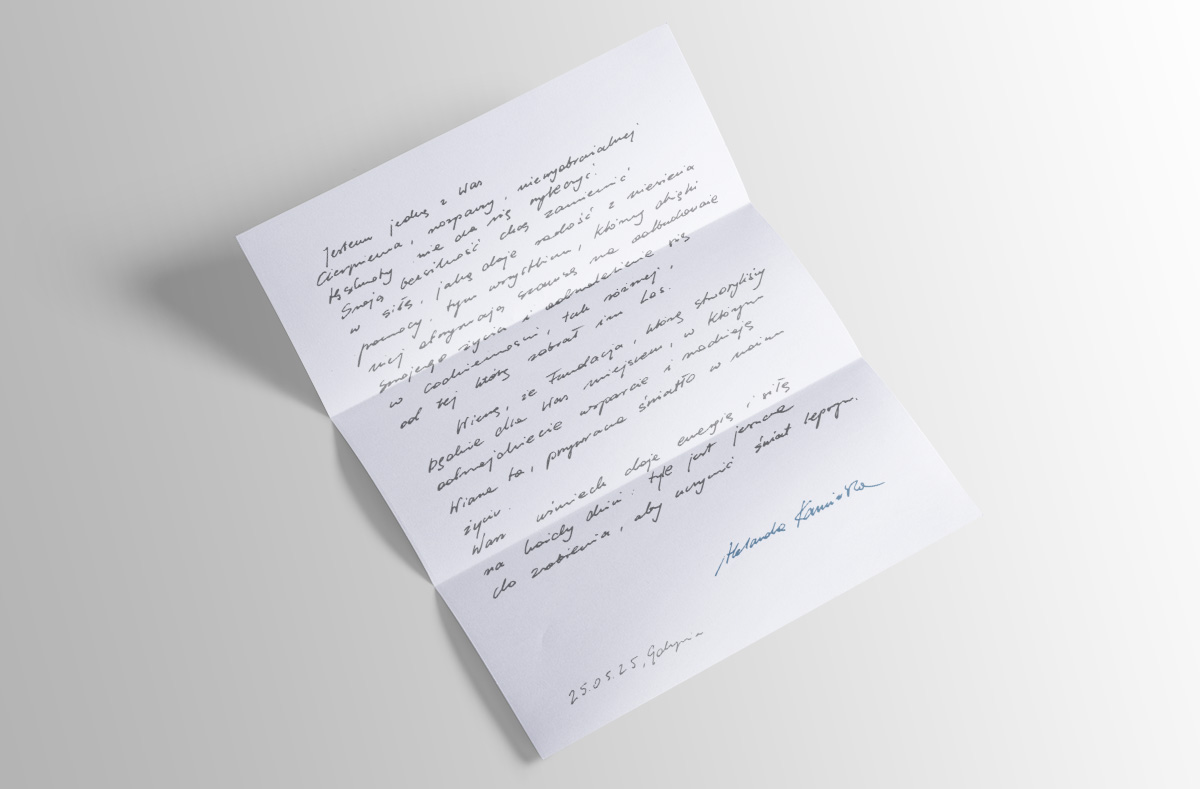 Jestem jedną z Was
Cierpienia, rozpaczy, niewyobrażalnej
tęsknoty nie da się wyleczyć.
Swoją bezsilność chcę zamienić
w siłę, jaką daje radość z niesienia
pomocy, tym wszystkim, którzy dzięki
niej otrzymają szansę na odbudowanie
swojego życia i odnalezienie się
w codzienności, tak różnej,
od tej którą zabrał im Los.
Wierzę, że Fundacja, którą stworzyliśmy
będzie dla Was miejscem, w którym
odnajdziecie wsparcie i nadzieję
Wiara ta, przywraca światło w moim
życiu.
Wasz uśmiech daje energię i siłę
na każdy dzień. Tyle jest jeszcze
do zrobienia, aby uczynić świat lepszym.
Aleksandra
25.05.25, Gdynia